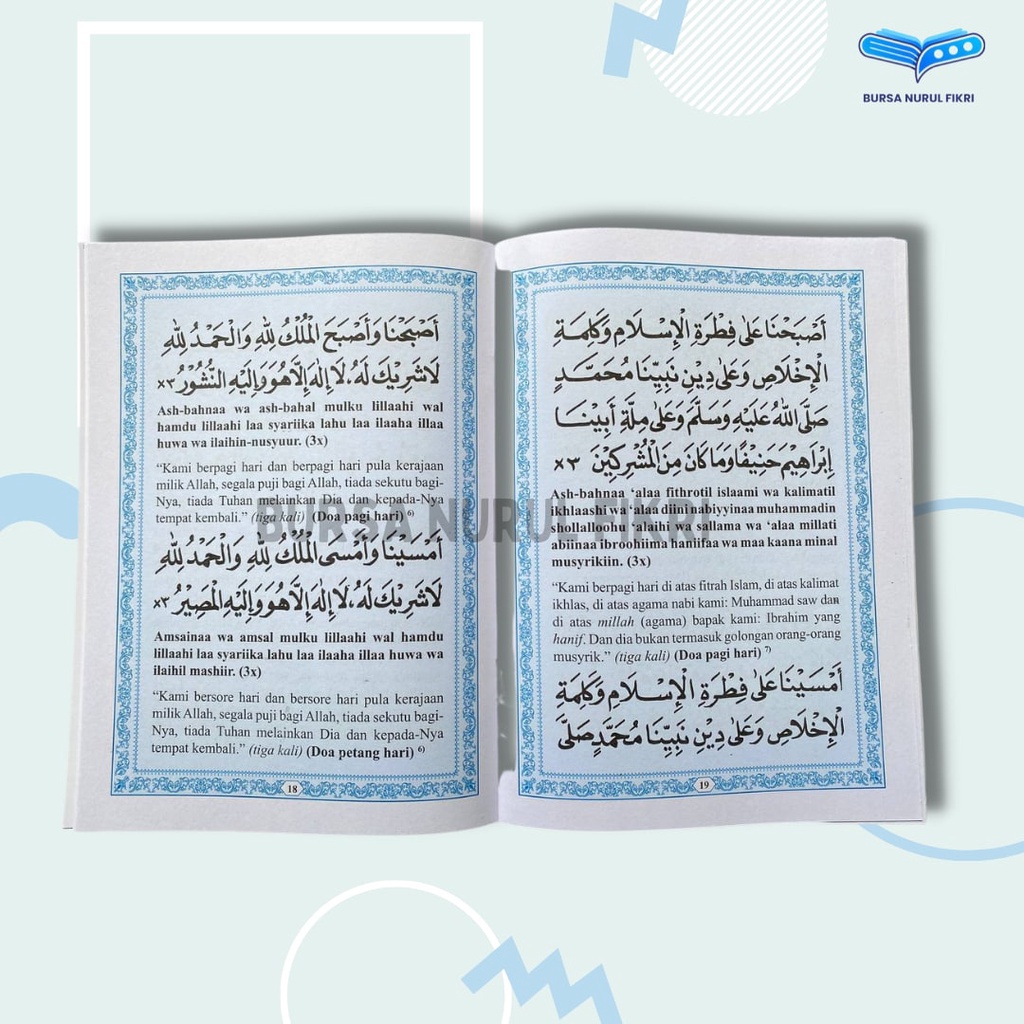 BURSA NURUL FIKRI
أَصْبَحْنَا وَأَصْبَحَ الْمُلْكُ لِلّٰهِ وَالْحَمْدُ لِلّٰهِ
لَا شَرِيْكَ لَهُ، لَا إِلٰهَ إِلَّا هُوَ وَإِلَيْهِ النُّشُوْرُ ×٣
Ash-bahnaa wa ash-bahal mulku lillaahi wal
hamdu lillaahi laa syariika lahu laa ilaaha illaa
huwa wa ilaihin-nusyuur. (3x)
“Kami berpagi hari dan berpagi hari pula kerajaan
milik Allah, segala puji bagi Allah, tiada sekutu bagi-
Nya, tiada Tuhan melainkan Dia dan kepada-Nya
tempat kembali.” (tiga kali) (Doa pagi hari) 6)
أَمْسَيْنَا وَأَمْسَى الْمُلْكُ لِلّٰهِ وَالْحَمْدُ لِلّٰهِ
لَا شَرِيْكَ لَهُ، لَا إِلٰهَ إِلَّا هُوَ وَإِلَيْهِ الْمَصِيْرُ ×٣
Amsainaa wa amsal mulku lillaahi wal hamdu
lillaahi laa syariika lahu laa ilaaha illaa huwa wa
ilaihil mashiir. (3x)
“Kami bersore hari dan bersore hari pula kerajaan
milik Allah, segala puji bagi Allah, tiada sekutu bagi-
Nya, tiada Tuhan melainkan Dia dan kepada-Nya
tempat kembali.” (tiga kali) (Doa petang hari) 6)
18
أَصْبَحْنَا عَلَى فِطْرَةِ الْإِسْلَامِ وَكَلِمَةِ
الْإِخْلَاصِ وَعَلَى دِيْنِ نَبِيِّنَا مُحَمَّدٍ
صَلَّى اللهُ عَلَيْهِ وَسَلَّمَ وَعَلَى مِلَّةِ أَبِيْنَا
إِبْرَاهِيْمَ حَنِيْفًا وَمَا كَانَ مِنَ الْمُشْرِكِيْنَ ×٣
Ash-bahnaa ‘alaa fithrotil islaami wa kalimatil
ikhlaashi wa ‘alaa diini nabiyyinaa muhammadin
shollalloohu ‘alaihi wa sallama wa ‘alaa millati
abiinaa ibroohiima haniifaa wa maa kaana minal
musyrikiin. (3x)
“Kami berpagi hari di atas fitrah Islam, di atas kalimat
ikhlas, di atas agama nabi kami: Muhammad saw dan
di atas millah (agama) bapak kami: Ibrahim yang
hanif. Dan dia bukan termasuk golongan orang-orang
musyrik.” (tiga kali) (Doa pagi hari) 7)
أَمْسَيْنَا عَلَى فِطْرَةِ الْإِسْلَامِ وَكَلِمَةِ
الْإِخْلَاصِ وَعَلَى دِيْنِ نَبِيِّنَا مُحَمَّدٍ صَلَّى
19
BURSA NURUL FIKRI